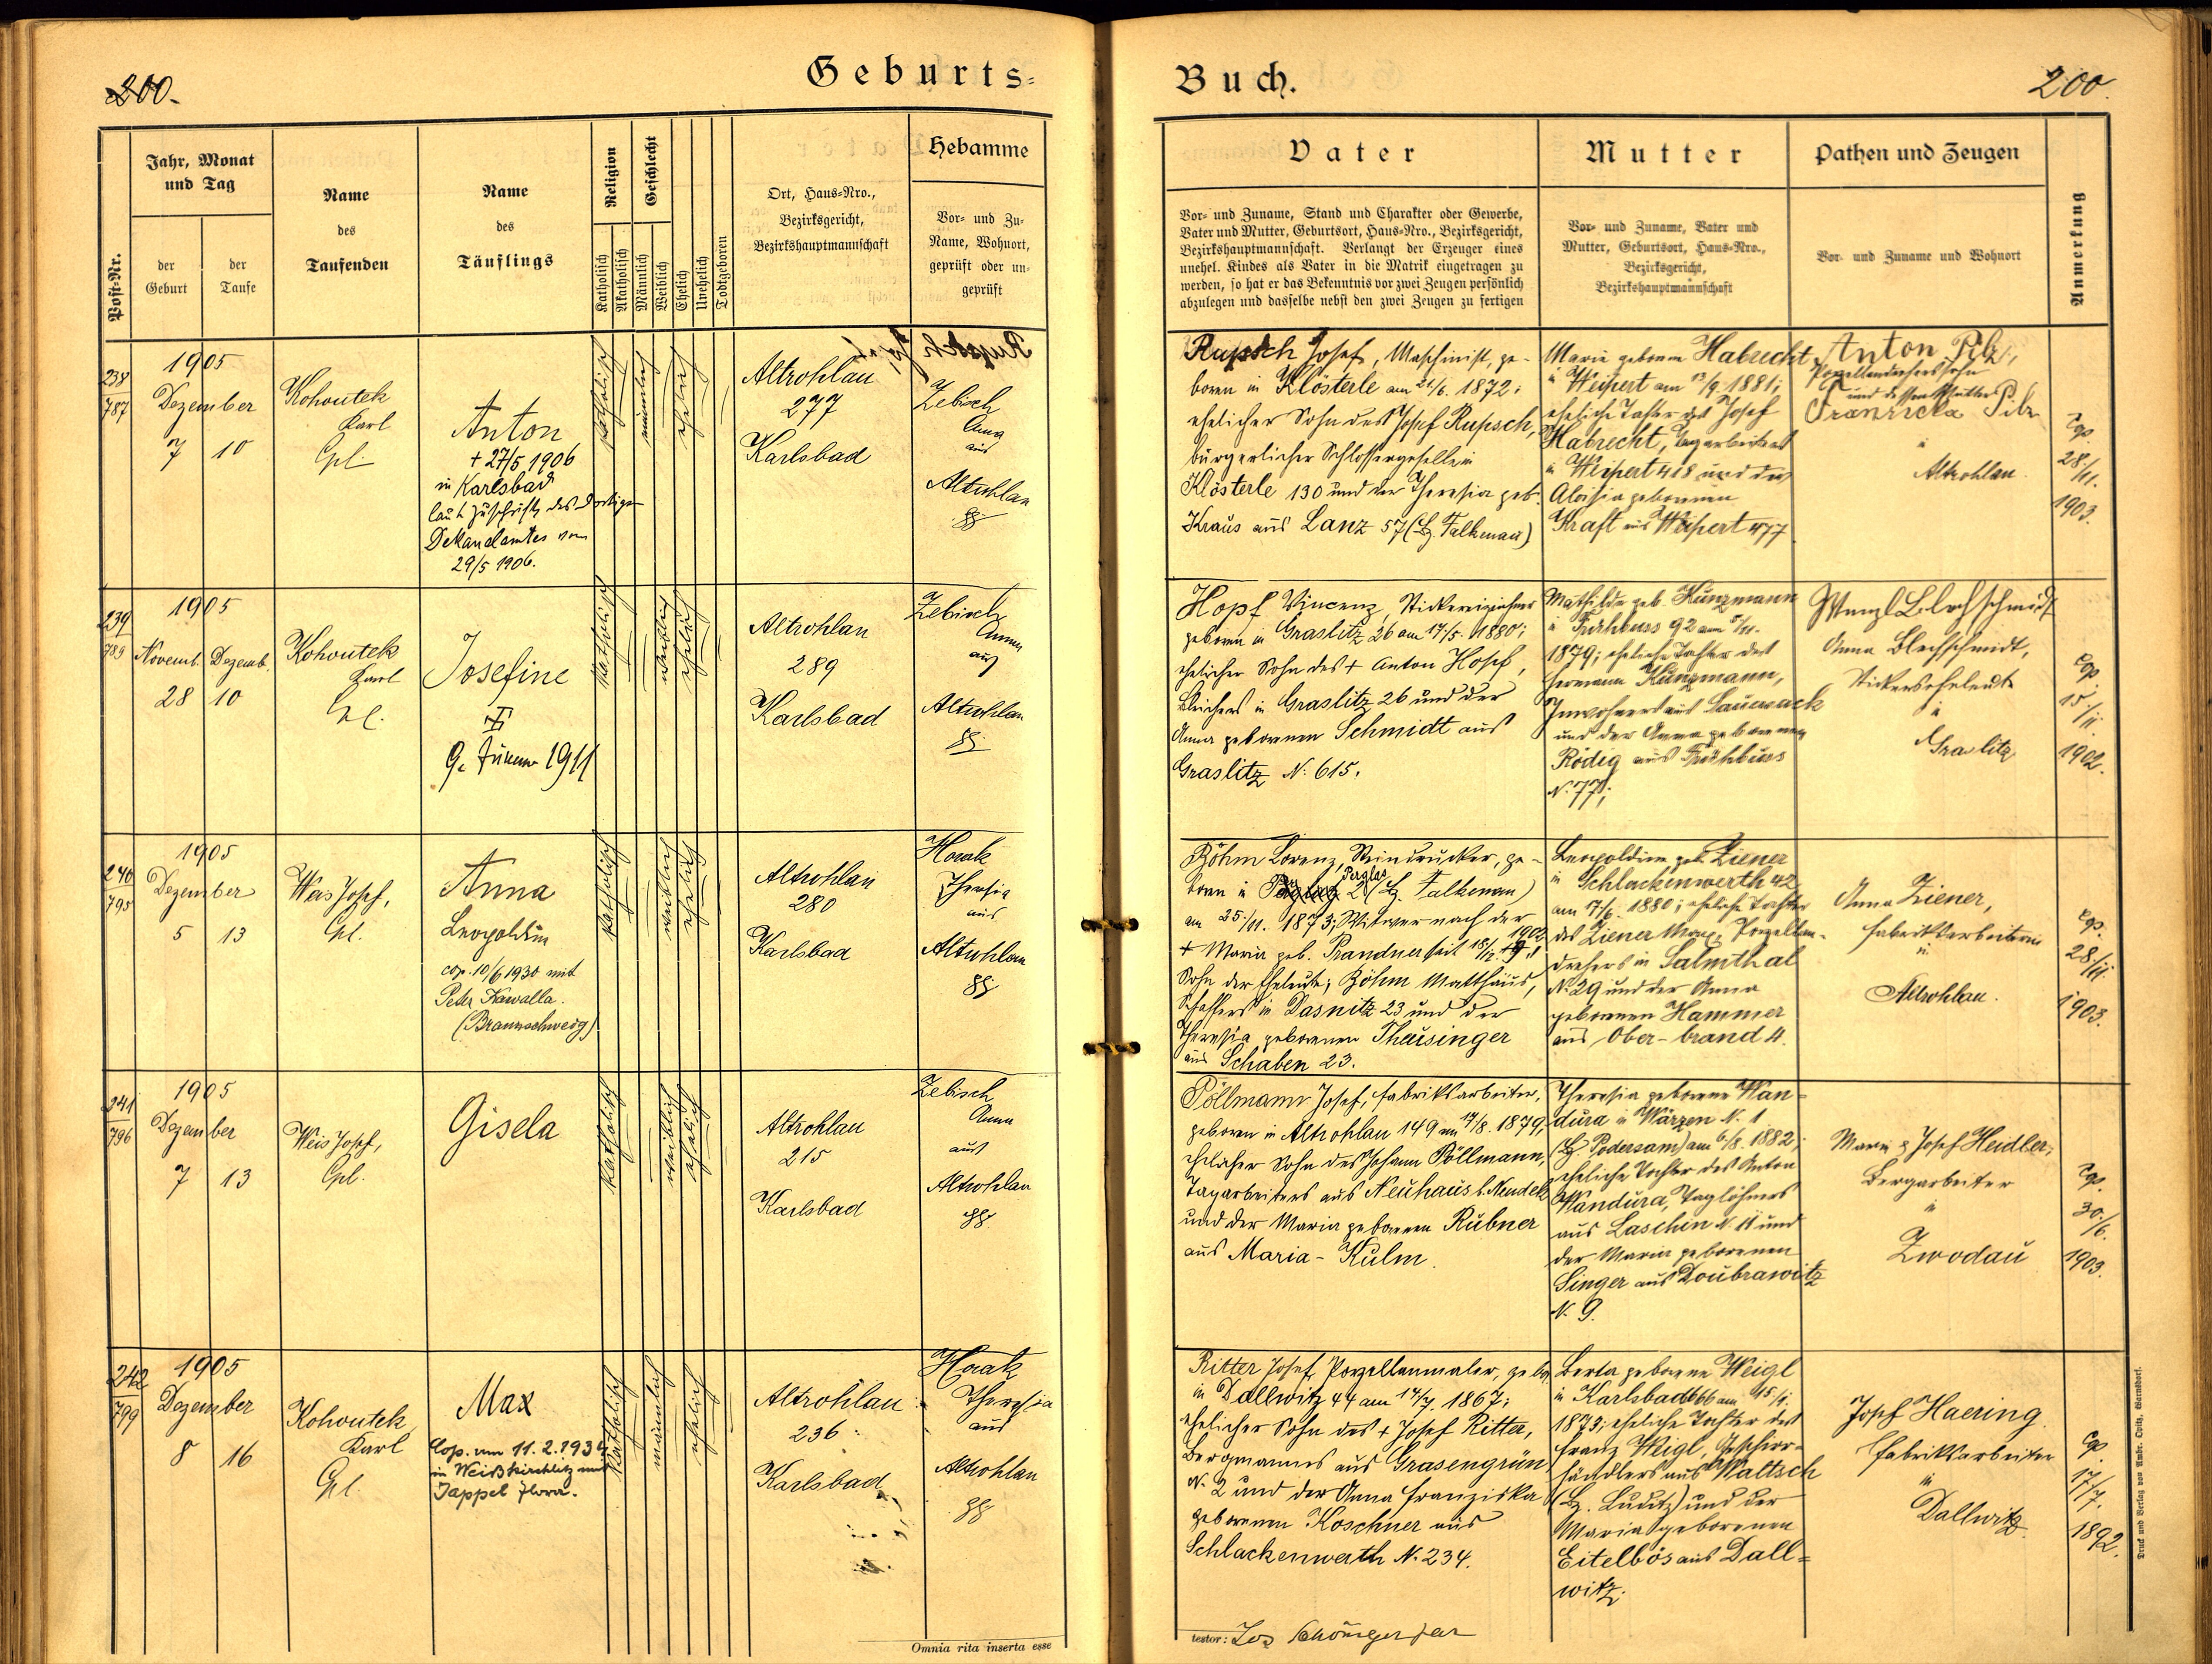 200.
Geburts=
Buch.
200.
Post-Nr.
Jahr, Monat
und Tag
der
Geburt
der
Taufe
Name
des
Taufenden
Name
des
Täuflings
Religion
Katholisch
Akatholisch
Geschlecht
Männlich
Weiblich
Ehelich
Unehelich
Todtgeboren
Ort, Haus=Nro.,
Bezirksgericht,
Bezirkshauptmannschaft
Hebamme
Vor= und Zu=
Name, Wohnort,
geprüft oder un=
geprüft
Vater
Vor= und Zuname, Stand und Charakter oder Gewerbe,
Vater und Mutter, Geburtsort, Haus=Nro., Bezirksgericht,
Bezirkshauptmannschaft. Verlangt der Erzeuger eines
unehel. Kindes als Vater in die Matrik eingetragen zu
werden, so hat er das Bekenntnis vor zwei Zeugen persönlich
abzulegen und dasselbe nebst den zwei Zeugen zu fertigen
Mutter
Vor= und Zuname, Vater und
Mutter, Geburtsort, Haus=Nro.,
Bezirksgericht,
Bezirkshauptmannschaft
Pathen und Zeugen
Vor= und Zuname und Wohnort
Anmerkung
238
787
1905
Dezember
7 10
Kohoutek
Karl
Cpl.
Anton
+ 27/5 1906
in Karlsbad
laut Zuschrift des dortigen
Dekanalamtes vom
29/5 1906.
katholisch
männlich
ehelich
Altrohlau
277
Karlsbad
Zebisch
Anna
aus
Altrohlau
Rupsch Josef, Maschinist, ge-
boren in Klösterle am 21./6. 1872;
ehelicher Sohn des Josef Rupsch,
bürgerlicher Schlossergeselle in
Klösterle 130 und der Theresia geb.
Kraus aus Lanz 57 (Bz. Falkenau)
Marie geborene Habrecht
in Weipert am 13/9. 1881;
eheliche Tochter des Josef
Habrecht, Tagarbeiters
in Weipert 418 und der
Aloisia geborenen
Kraft aus Weipert 477
Anton Pilz,
Porzellandreherssohn
und dessen Mutter
Franziska Pilz
in
Altrohlau.
cop.
28/11.
1903.
239
789
1905
Novemb. Dezemb.
28 10
Kohoutek
Karl
Cpl.
Josefine
9. Jänner 1911
katholisch
weiblich
ehelich
Altrohlau
289
Karlsbad
Zebisch
Anna
aus
Altrohlau
Hopf Vincenz, Stickereizeichner
geboren in Graslitz 26 am 17/5. 1880;
ehelicher Sohn des + Anton Hopf,
Bleichers in Graslitz 26 und der
Anna geborenen Schmidt aus
Graslitz N: 615.
Mathilde geb. Kunzmann
in Frühbuss 92 am
1879; eheliche Tochter des
Hermann Kunzmann,
Inwohners aus Sauersack
und der Anna geborenen
Rödig aus Frühbuss
N. 77;
Wenzl Blechschmidt
Anna Blechschmidt,
Stickerseheleute
in
Graslitz
cop.
15./11.
1902.
240
795
1905
Dezember
5 13
Weis Josef,
Cpl.
Anna
Leopoldin
cop. 10/6 1930 mit
Peter Kawalla.
(Braunschweig)
katholisch
weiblich
ehelich
Altrohlau
280
Karlsbad
Horak
Theresia
aus
Altrohlau
Böhm Lorenz, Steindrucker, ge-
Perglas
boren in 2 (Bz. Falkenau)
am 25./11. 1873; Witwer nach der
1902
+ Maria geb. Brandner seit 18/12
Sohn der Eheleute; Böhm Matthäus,
Schaffers in Dasnitz 23 und der
Theresia geborenen Theusinger
aus Schaben 23.
Leopoldine geb. Ziener
in Schlackenwerth 42
am 17/6. 1880; eheliche Tochter
des Ziener Max, Porzellan-
drehers in Salmthal
N. 29 und der Anna
geborenen Hammer
aus Ober-brand 4.
Anna Ziener,
Fabriksarbeiterin
in
Altrohlau.
cop.
28/11
1903.
241
796
1905
Dezember
7 13
Weis Josef,
Cpl.
Gisela
katholisch
weiblich
ehelich
Altrohlau
215
Karlsbad
Zebisch
Anna
aus
Altrohlau
Pöllmann Josef, Fabriksarbeiter,
geboren in Altrohlau 149 am 14/8. 1879,
ehelicher Sohn des Johann Pöllmann,
Tagarbeiters aus Neuhaus b. Neudek
und der Maria geborenen Rubner
aus Maria-Kulm.
Theresia geborene Wan-
dura in Wärzen N. 1
(Bz. Podersam) am 6/8. 1882;
eheliche Tochter des Anton
Wandura, Taglöhners
aus Laschin N. 11 und
der Maria geborenen
Singer aus Doubrawitz
N. 9.
Marie & Josef Heidler,
Bergarbeiter
in
Zwodau
cop.
30./6.
1903.
242
799
1905
Dezember
8 16
Kohoutek
Karl
Cpl.
Max
Cop. am 11. 2. 1934
in Weißkirchlitz mit
Tappel Flora.
katholisch
männlich
ehelich
Altrohlau
236
Karlsbad
Horak
Theresia
aus
Altrohlau
Ritter Josef, Porzellanmaler, gebor.
in Dallwitz 44 am 14/7. 1867;
ehelicher Sohn des + Josef Ritter,
Bergmannes aus Grasengrün
N. 2 und der Anna Franziska
geborenen Koschner aus
Schlackenwerth N. 234.
Berta geborene Weigl
in Karlsbad 666 am 15/1.
1873; eheliche Tochter des
Franz Weigl, Geschirr-
händlers aus Waltsch
(Bz. Luditz) und der
Maria geborenen
Eitelbös aus Dall=
witz;
Josef Haering
Fabriksarbeiter
in
Dallwitz.
cop.
17/7.
1892.
Omnia rita inserta esse
testor:
Druck und Verlag von Ambr. Opitz, Warnsdorf.